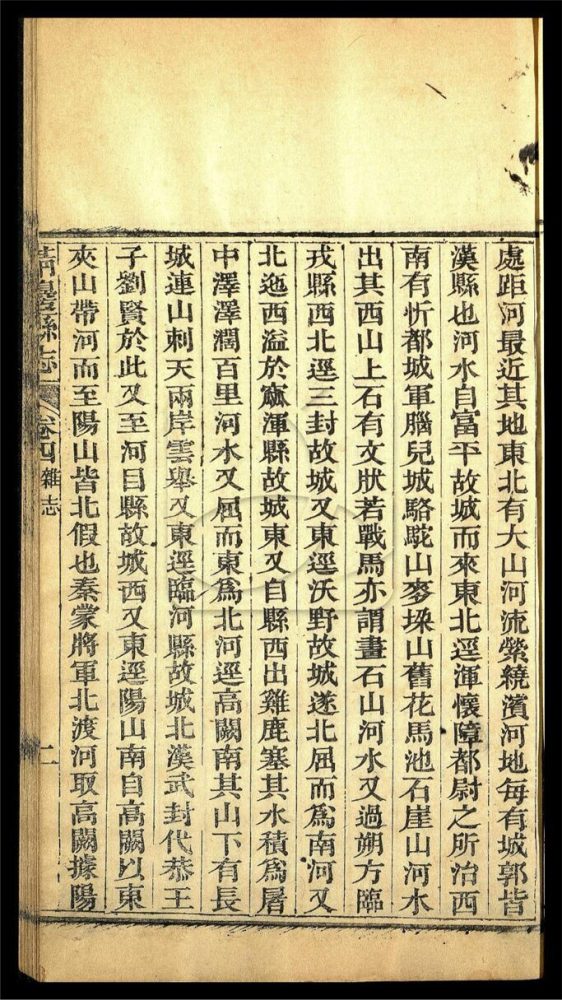 處距河最近其地東北有大山河流縈繞濱河地每有城郭皆
漢縣也河水自富平故城而來東北逕渾懷障都尉之所治西
南有忻都城軍腦兒城駱駝山麥垜山舊花馬池石崖山河水
出其西山上石有文狀若戰馬亦謂畫石山河水又過朔方臨
戎縣西北逕三封故城又東逕沃野故城遂北屈而爲南河又
北迤西溢於窳渾縣故城東又自縣西出雞鹿塞其水積爲屠
中澤澤濶百里河水又屈而東爲北河逕高闕南其山下有長
城連山刺天兩岸雲舉又東逕臨河縣故城北漢武封代恭王
子劉賢於此又至河目縣故城西又東逕陽山南自高闕以東
夾山帶河而至陽山皆北假也秦蒙將軍北渡河取高闕據陽
靖邊縣志
卷四
雜志
二